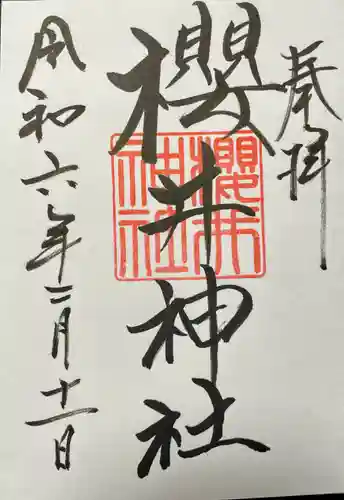 奉拝
櫻井神社
櫻井神社
令和六年二月十一日